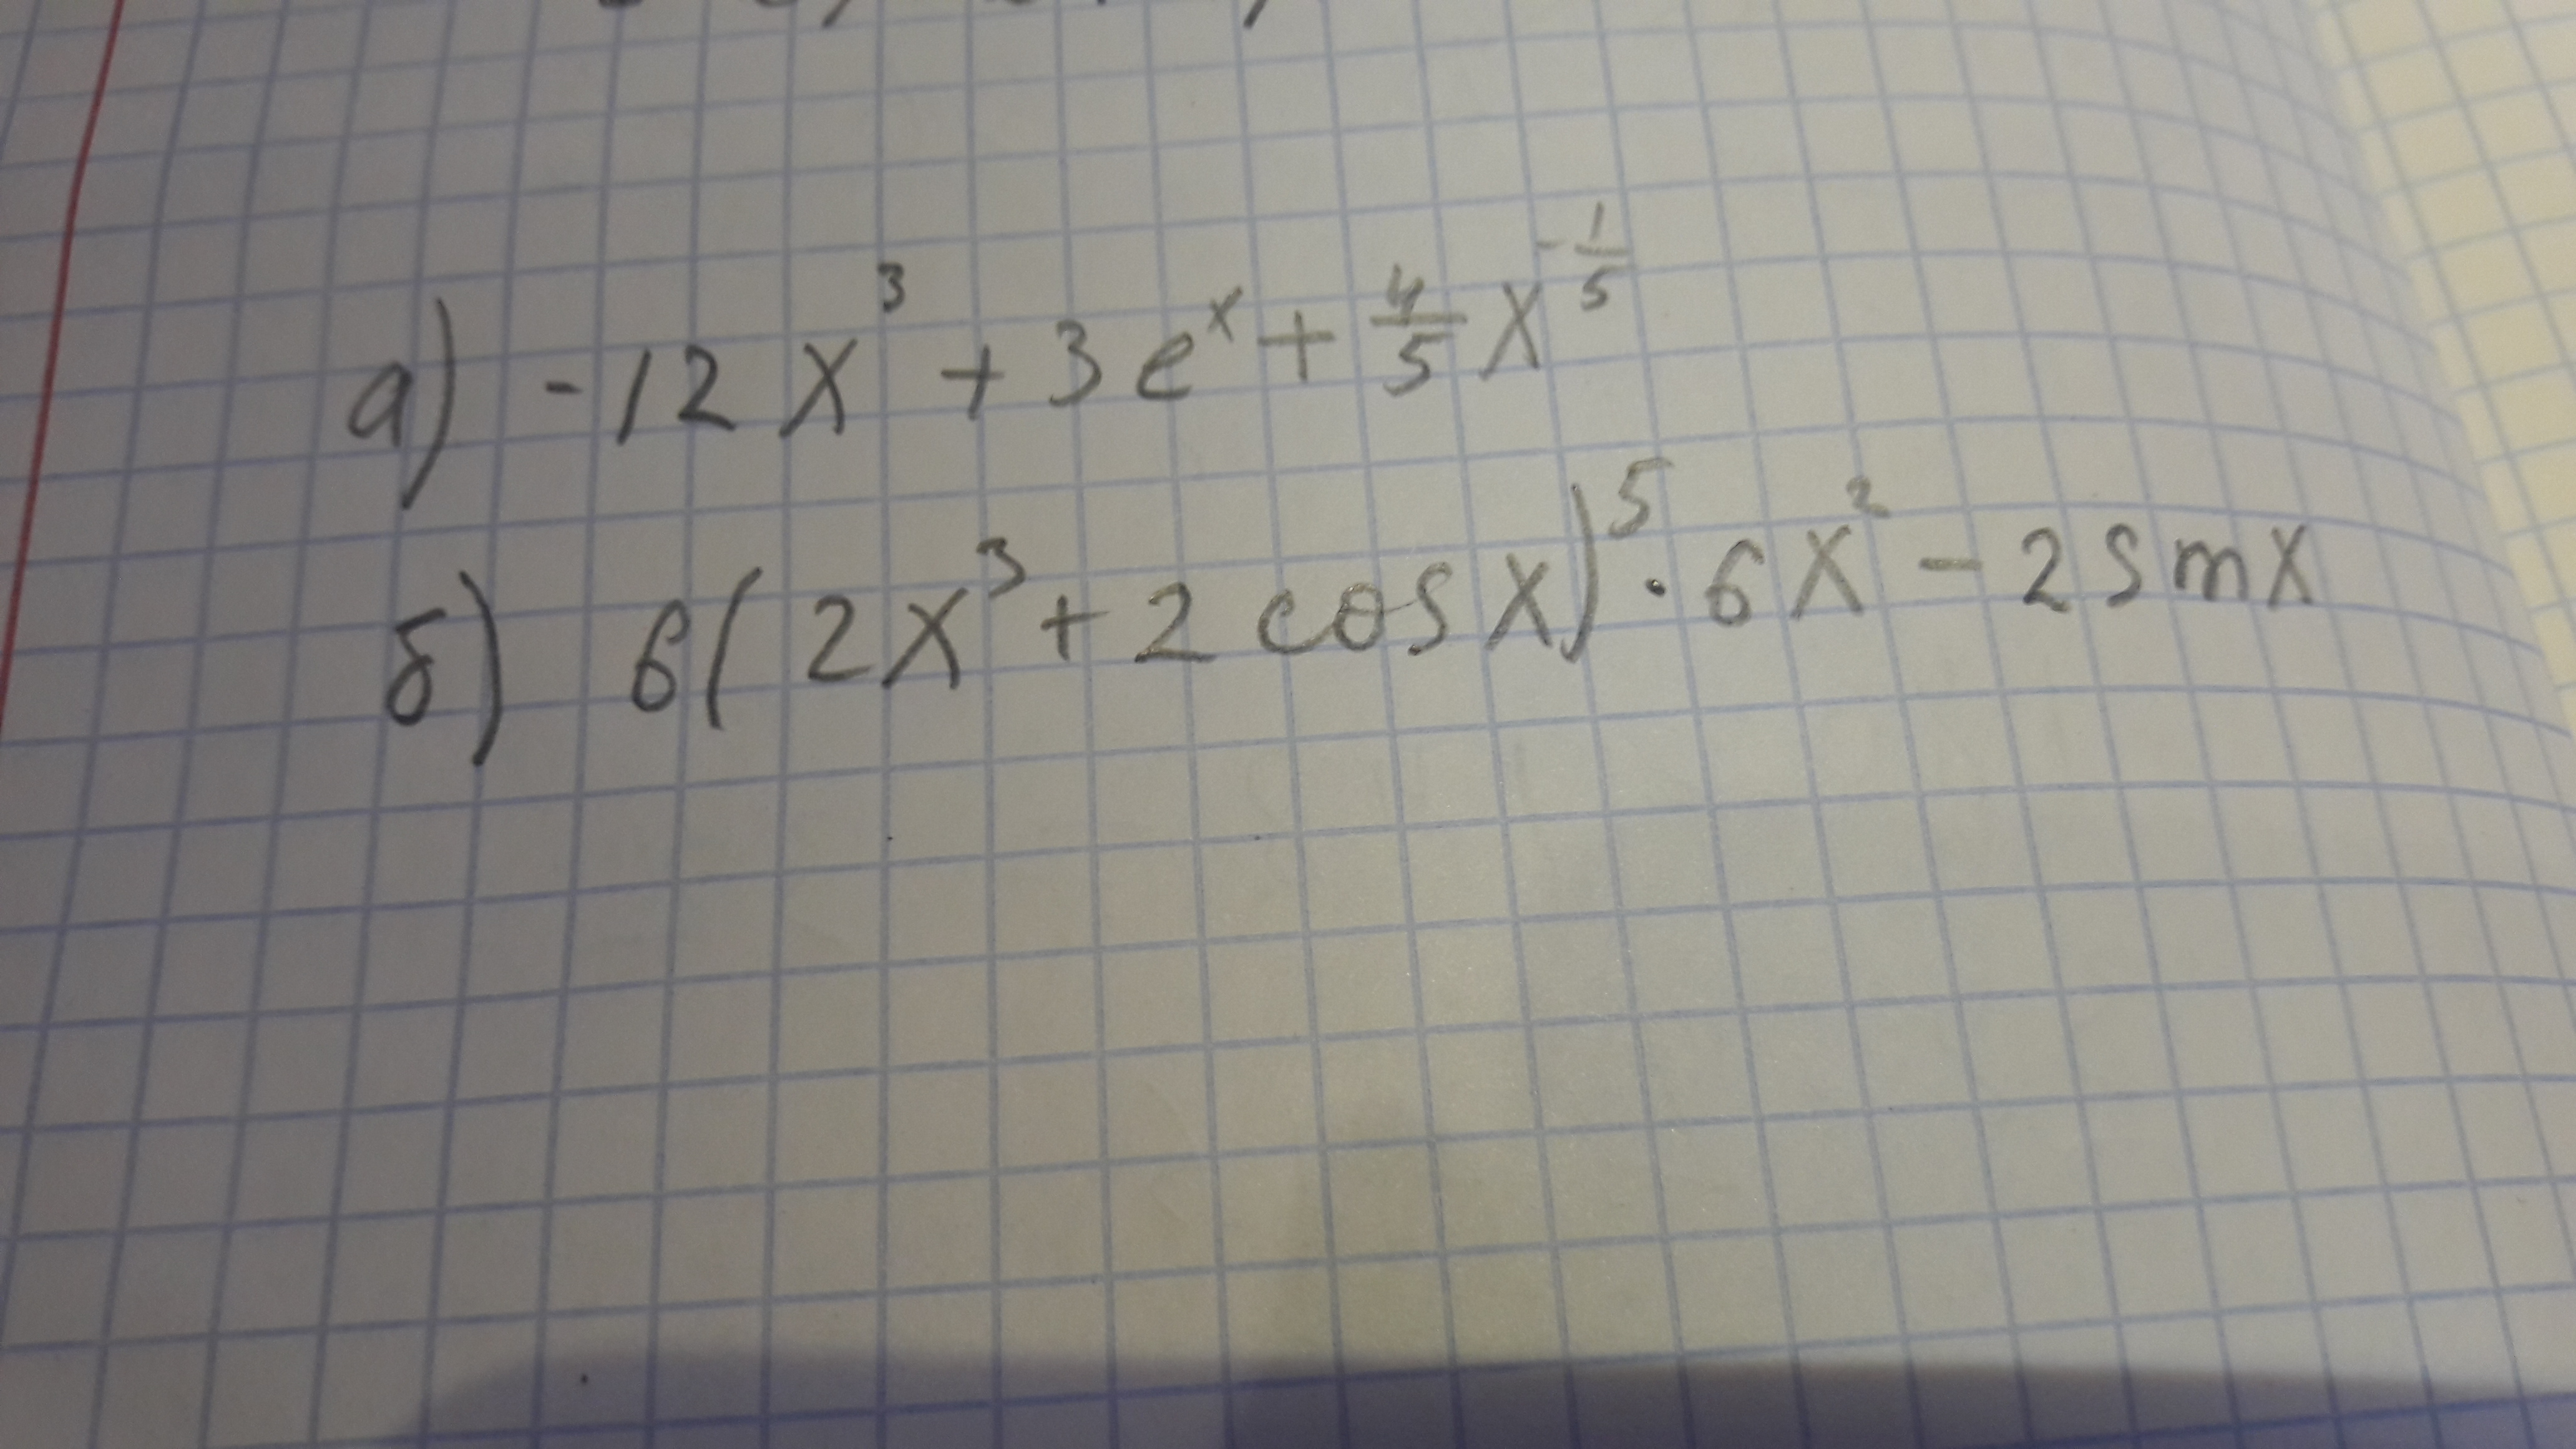 а) -12x³ + 3eˣ + 4/5 x^(-1/5)
б) 6(2x³ + 2 cos x)⁵ · 6x² - 2 sin x